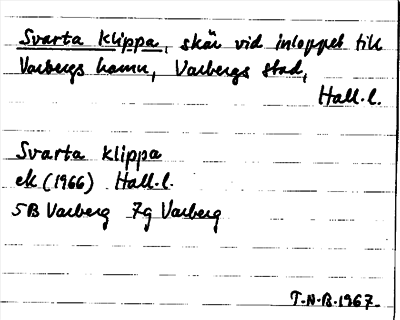 Svarta Klippa, skär vid inloppet till
Varbergs hamn, Varbergs stad,
Hall.l.
Svarta klippa
ek (1966) Hall.l.
5B Varberg 7g Varberg
T.N.B. 1967.